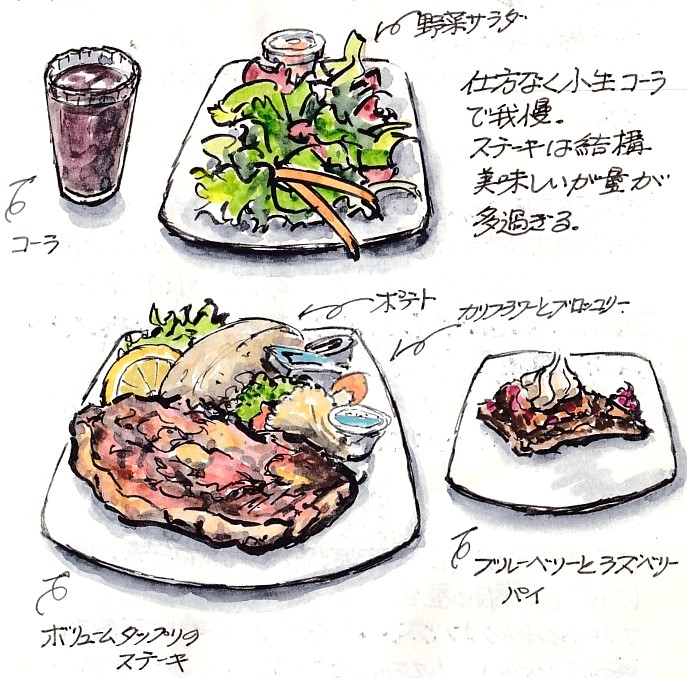 野菜サラダ
仕方なく小生コーラ
で我慢。
ステーキは結構
美味しいが量が
多過ぎる。
コーラ
ポテト
カリフラワーとブロッコリー
ブルーベリーとラズベリー
パイ
ボリュームタップリの
ステーキ